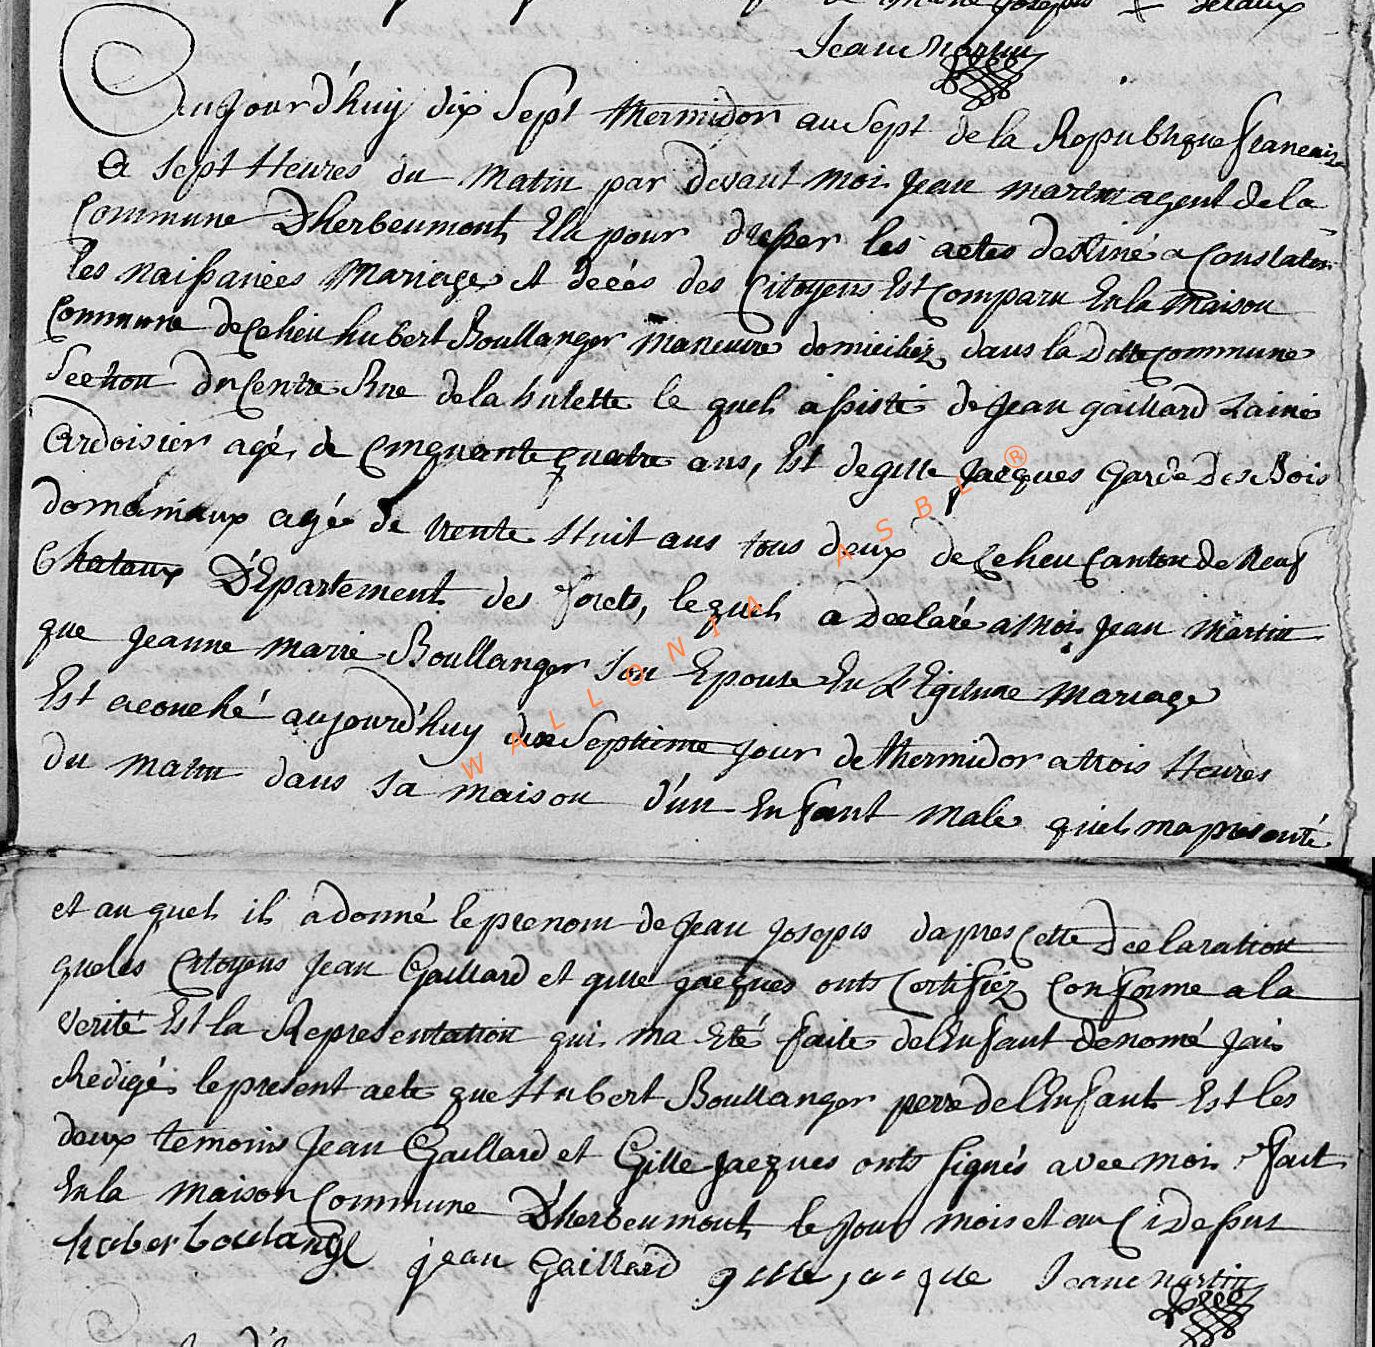 Jean martin
Aujourd'huij dix Sept thermidor an Sept de la Republique francaise
a sept Heures du matin par devant moi Jean martin agent de la
Commune Dherbeumont Elu pour dresser les actes destiné a Constater
les naissances mariages et décés des Citoyens Est Comparu En la maison
Commune de Ce lieu hubert Boullanger maneuvre domiciliéz dans la Ditte Commune
Section du Centre Rue de la hulette le quel assisté de Jean gaillard Lainé
ardoisier agé de Cinquante quatre ans, Est de gille Jacques garde Des Bois
domainiaux agé de trente Huit ans tous deux de Ce lieu Canton de neuf
Chataux DEpartement des forets, lequel a declaré a moi Jean martin
que jeanne marie Boullanger Son Epouse En LEgitime mariage
Est acouché aujourd'huy dix Septieme jour de thermidor a trois Heures
du matin dans sa maison d'un Enfant male quil ma presenté
et au quel il a donné le prenom de Jean Joseph dapres Cette Declaration
que les Citoyens Jean Gaillard et gille jacques onts Certifiez Conforme a la
verité Est la Representation qui ma Eté faite de lEnfant denomé jai
Redigé le present acte que Hubert Boullanger perre de lEnfant Est les
deux temoins Jean Gaillard et Gille Jacques onts signés avec moi fait
En la maison Commune D'herbeumont le jour mois et an Ci Dessus
huber boulange jean Gaillard gille jacque Jean martin
WALLONIA ASBL ®